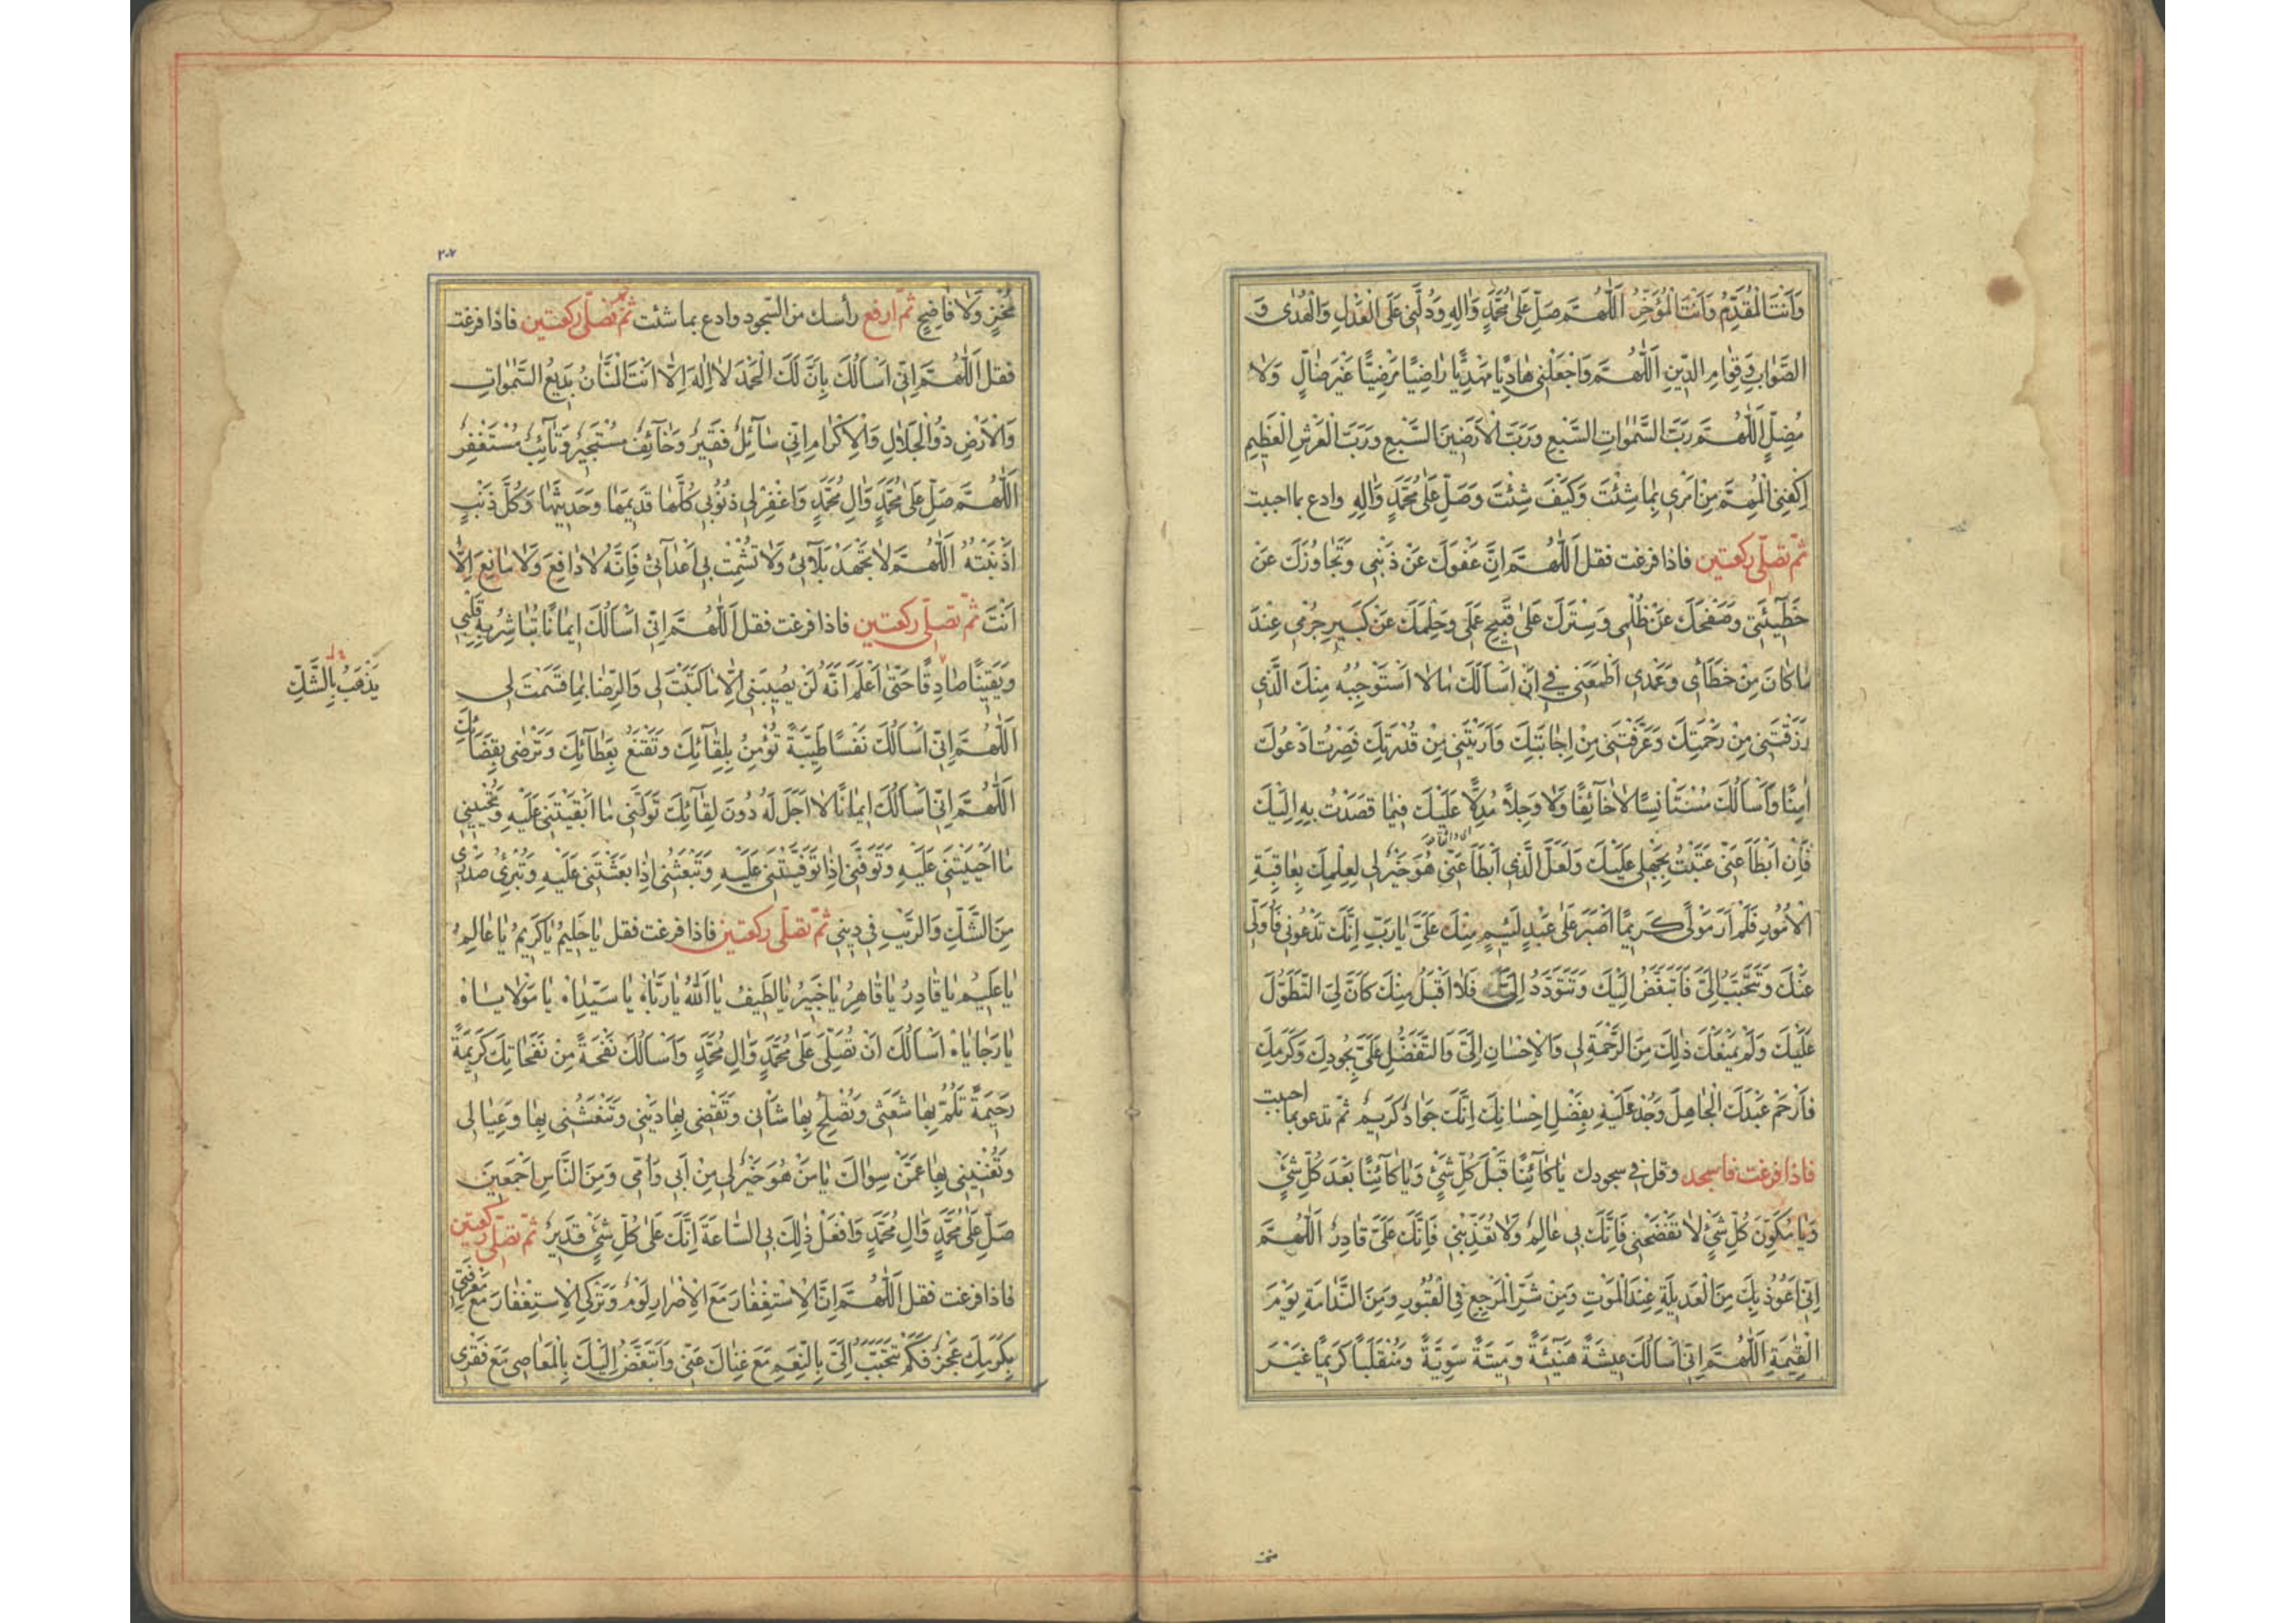 وَاَنْتَ الْمُقَدِّمُ وَاَنْتَ الْمُؤَخِّرُ اَللّٰهُمَّ صَلِّ عَلٰى مُحَمَّدٍ وَاٰلِهِ وَدُلَّنِى عَلَى الْعَدْلِ وَالْهُدٰى وَ
الصَّوَابِ وَقِوٰامِ الدّينِ اَللّٰهُمَّ وَاجْعَلْنى هَادِيًا مَهْدِيًّا رٰاضِيًا مَرْضِيًّا غَيْرَ ضٰالٍّ وَلٰا
مُضِلٍّ اَللّٰهُمَّ رَبَّ السَّمٰوٰاتِ السَّبْعِ وَرَبَّ الْاَرَضينَ السَّبْعِ وَرَبَّ الْعَرْشِ الْعَظيمِ
اِكْفِنِى الْمُهِمَّ مِنْ اَمْرى بِمٰا شِئْتَ وَكَيْفَ شِئْتَ وَصَلِّ عَلٰى مُحَمَّدٍ وَاٰلِهِ وادع بما احببت
ثمّ تصلّى ركعتين فاذا فرغت فقل اَللّٰهُمَّ اِنَّ عَفْوَكَ عَنْ ذَنْبى وَتَجٰاوُزَكَ عَنْ
خَطٓيئَتى وَصَفْحَكَ عَنْ ظُلْمى وَسِتْرَكَ عَلٰى قَبيحِ عَمَلى وَحِلْمَكَ عَنْ كَبيرِ جُرْمى عِنْدَ
مٰا كٰانَ مِنْ خَطَأى وَعَمْدى اَطْمَعَنى فى اَنْ اَسْاَلَكَ مٰا لٰا اَسْتَوْجِبُهُ مِنْكَ الَّذى
رَزَقْتَنى مِنْ رَحْمَتِكَ وَعَرَّفْتَنى مِنْ اِجٰابَتِكَ وَاَرَيْتَنى مِنْ قُدْرَتِكَ فَصِرْتُ اَدْعُوكَ
اٰمِنًا وَاَسْاَلُكَ مُسْتَاْنِسًا لٰا خٰٓائِفًا وَلٰا وَجِلًا مُدِلًّا عَلَيْكَ فيمٰا قَصَدْتُ بِهِ اِلَيْكَ
فَاِنْ اَبْطَاَ عَنّى عَتَبْتُ بِجَهْلى عَلَيْكَ وَلَعَلَّ الَّذى اَبْطَاَ عَنّى هُوَ خَيْرٌ لى لِعِلْمِكَ بِعٰاقِبَةِ
الْاُمُورِ فَلَمْ اَرَ مَوْلًى كَريمًا اَصْبَرَ عَلٰى عَبْدٍ لَئيمٍ مِنْكَ عَلَىَّ يٰا رَبِّ اِنَّكَ تَدْعُونى فَاُوَلّى
عَنْكَ وَتَتَحَبَّبُ اِلَىَّ فَاَتَبَغَّضُ اِلَيْكَ وَتَتَوَدَّدُ اِلَىَّ فَلٰا اَقْبَلُ مِنْكَ كَاَنَّ لِىَ التَّطَوُّلَ
عَلَيْكَ وَلَمْ يَمْنَعْكَ ذٰلِكَ مِنَ الرَّحْمَةِ لى وَالْاِحْسٰانِ اِلَىَّ وَالتَّفَضُّلِ عَلَىَّ بِجُودِكَ وَكَرَمِكَ
فَارْحَمْ عَبْدَكَ الْجٰاهِلَ وَجُدْ عَلَيْهِ بِفَضْلِ اِحْسٰانِكَ اِنَّكَ جَوٰادٌ كَريمٌ ثمّ تدعو بما احببت
فاذا فرغت فاسجد وقل فى سجودك يٰا كٰٓائِنًا قَبْلَ كُلِّ شَىْءٍ وَيٰا كٰٓائِنًا بَعْدَ كُلِّ شَىْءٍ
وَيٰا مُكَوِّنَ كُلِّ شَىْءٍ لٰا تَفْضَحْنى فَاِنَّكَ بى عٰالِمٌ وَلٰا تُعَذِّبْنى فَاِنَّكَ عَلَىَّ قٰادِرٌ اَللّٰهُمَّ
اِنّى اَعُوذُ بِكَ مِنَ الْعَديلَةِ عِنْدَ الْمَوْتِ وَمِنْ شَرِّ الْمَرْجِعِ فِى الْقُبُورِ وَمِنَ النَّدٰامَةِ يَوْمَ
الْقِيٰمَةِ اَللّٰهُمَّ اِنّى اَسْاَلُكَ عيشَةً هَنيئَةً وَميتَةً سَوِيَّةً وَمُنْقَلَبًا كَريمًا غَيْرَ
٢٠٧
مُخْزٍ وَلٰا فٰاضِحٍ ثمّ ارفع رأسك من السّجود وادع بما شئت ثمّ تصلّى ركعتين فاذا فرغت
فقل اَللّٰهُمَّ اِنّى اَسْاَلُكَ بِاَنَّ لَكَ الْحَمْدَ لٰا اِلٰهَ اِلّٰا اَنْتَ الْمَنّٰانُ بَديعُ السَّمٰوٰاتِ
وَالْاَرْضِ ذُو الْجَلٰالِ وَالْاِكْرٰامِ اِنّى سٰٓائِلٌ فَقيرٌ وَخٰٓائِفٌ مُسْتَجيرٌ وَتٰٓائِبٌ مُسْتَغْفِرٌ
اَللّٰهُمَّ صَلِّ عَلٰى مُحَمَّدٍ وَاٰلِ مُحَمَّدٍ وَاغْفِرْ لى ذُنُوبى كُلَّهٰا قَديمَهٰا وَحَديثَهٰا وَكُلَّ ذَنْبٍ
اَذْنَبْتُهُ اَللّٰهُمَّ لٰا تُجْهِدْ بَلٰٓائى وَلٰا تُشْمِتْ بى اَعْدٰٓائى فَاِنَّهُ لٰا دٰافِعَ وَلٰا مٰانِعَ اِلّٰا
اَنْتَ ثمّ تصلّى ركعتين فاذا فرغت فقل اَللّٰهُمَّ اِنّى اَسْاَلُكَ ايمٰانًا تُبٰاشِرُ بِهِ قَلْبى
وَيَقينًا صٰادِقًا حَتّٰى اَعْلَمَ اَنَّهُ لَنْ يُصيبَنى اِلّٰا مٰا كَتَبْتَ لى وَالرِّضٰا بِمٰا قَسَمْتَ لى
يَذْهَبُ بِالشَّكِّ
اَللّٰهُمَّ اِنّى اَسْاَلُكَ نَفْسًا طَيِّبَةً تُؤْمِنُ بِلِقٰٓائِكَ وَتَقْنَعُ بِعَطٰٓائِكَ وَتَرْضٰى بِقَضٰٓائِكَ
اَللّٰهُمَّ اِنّى اَسْاَلُكَ ايمٰانًا لٰا اَجَلَ لَهُ دُونَ لِقٰٓائِكَ تَوَلَّنى مٰا اَبْقَيْتَنى عَلَيْهِ وَتُحْيينى
مٰا اَحْيَيْتَنى عَلَيْهِ وَتَوَفَّنى اِذٰا تَوَفَّيْتَنى عَلَيْهِ وَتَبْعَثُنى اِذٰا بَعَثْتَنى عَلَيْهِ وَتُبْرِئُ صَدْرى
مِنَ الشَّكِّ وَالرَّيْبِ فى دينى ثمّ تصلّى ركعتين فاذا فرغت فقل يٰا حَليمُ يٰا كَريمُ يٰا عٰالِمُ
يٰا عَليمُ يٰا قٰادِرُ يٰا قٰاهِرُ يٰا خَبيرُ يٰا لَطيفُ يٰا اَللّٰهُ يٰا رَبّٰاهْ يٰا سَيِّدٰاهْ يٰا مَوْلٰايٰاهْ
يٰا رَجٰايٰاهْ اَسْاَلُكَ اَنْ تُصَلِّىَ عَلٰى مُحَمَّدٍ وَاٰلِ مُحَمَّدٍ وَاَسْاَلُكَ نَفْحَةً مِنْ نَفَحٰاتِكَ كَريمَةً
رَحيمَةً تَلُمُّ بِهٰا شَعَثى وَتُصْلِحُ بِهٰا شَاْنى وَتَقْضى بِهٰا دَيْنى وَتَنْعَشُنى بِهٰا وَعِيٰالى
وَتُغْنينى بِهٰا عَمَّنْ سِوٰاكَ يٰا مَنْ هُوَ خَيْرٌ لى مِنْ اَبى وَاُمّى وَمِنَ النّٰاسِ اَجْمَعينَ
صَلِّ عَلٰى مُحَمَّدٍ وَاٰلِ مُحَمَّدٍ وَافْعَلْ ذٰلِكَ بِى السّٰاعَةَ اِنَّكَ عَلٰى كُلِّ شَىْءٍ قَديرٌ ثمّ تصلّى ركعتين
فاذا فرغت فقل اَللّٰهُمَّ اِنَّ الْاِسْتِغْفٰارَ مَعَ الْاِصْرٰارِ لُؤْمٌ وَتَرْكِىَ الْاِسْتِغْفٰارَ مَعَ مَعْرِفَتى
بِكَرَمِكَ عَجْزٌ فَكَمْ تَتَحَبَّبُ اِلَىَّ بِالنِّعَمِ مَعَ غِنٰاكَ عَنّى وَاَتَبَغَّضُ اِلَيْكَ بِالْمَعٰاصى مَعَ فَقْرى